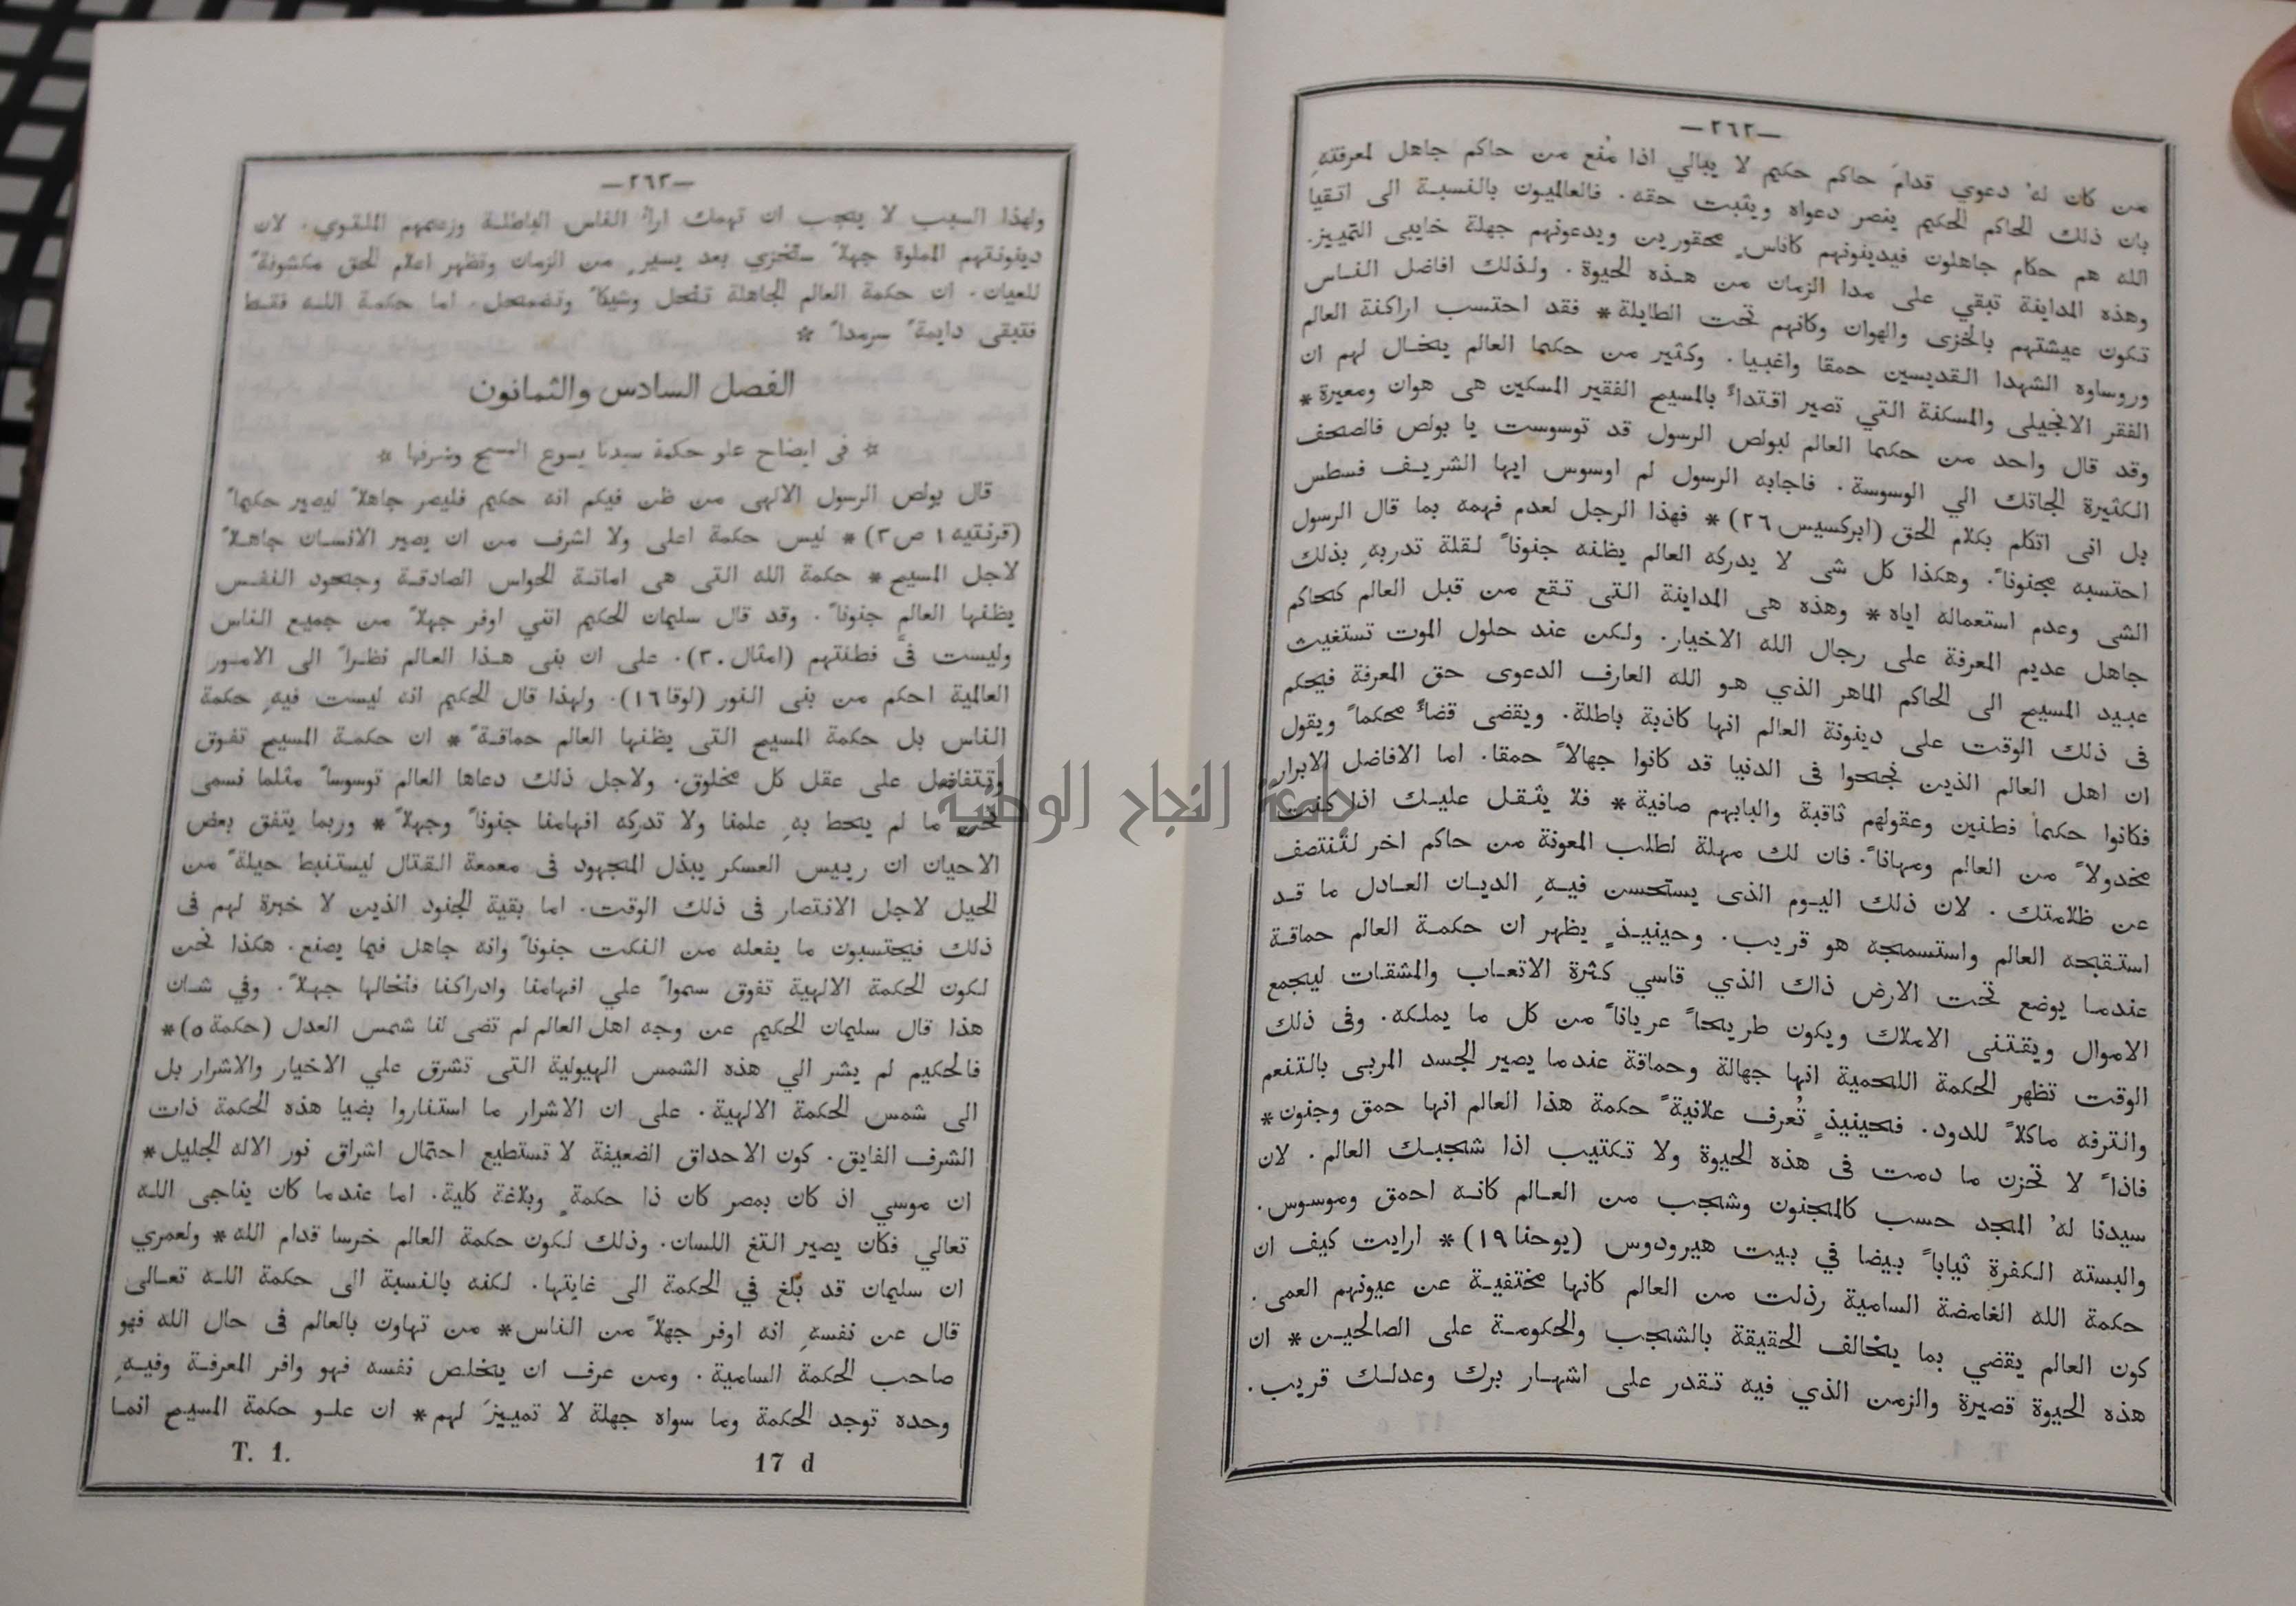 —٢٦٢—
من كان لهُ دعوي قدامَ حاكم حكيم لا يبالي اذا مُنع من حاكم جاهل لمعرفتهِ
بان ذلك الحاكم الحكيم ينصر دعواه ويثبت حقه . فالعالميون بالنسبة الى اتقيا
الله هم حكام جاهلون فيدينونهم كاناسٍ محقورين ويدعونهم جهلة خايبى التمييز.
وهذه المداينة تبقي على مدا الزمان من هذه الحيوة . ولذلك افاضل الناس
تكون عيشتهم بالخزى والهوان وكانهم تحت الطايلة * فقد احتسب اراكنة العالم
وروساوه الشهدا القديسين حمقا واغبيا . وكثير من حكيما العالم يتخال لهم ان
الفقر الانجيلى والمسكنة التي تصير اقتدآً بالمسيح الفقير المسكين هى هوان ومعيرة *
وقد قال واحد من حكيما العالم لبولص الرسول قد توسوست يا بولص فالصحف
الكثيرة الجاتك الي الوسوسة . فاجابه الرسول لم اوسوس ايها الشريف فسطس
بل انى اتكلم بكلام الحق (ابركسيس ٢٦) * فهذا الرجل لعدم فهمه بما قال الرسول
احتسبه مجنوناً . وهكذا كل شى لا يدركه العالم يظنه جنوناً لقلة تدربهِ بذلك
الشى وعدم استعماله اياه * وهذه هى المداينة التى تقع من قبل العالم كحاكم
جاهل عديم المعرفة على رجال الله الاخيار . ولكن عند حلول الموت تستغيث
عبيد المسيح الى الحاكم الماهر الذي هو الله العارف الدعوى حق المعرفة فيحكم
فى ذلك الوقت على دينونة العالم انها كاذبة باطلة . ويقضى قضآً محكماً ويقول
ان اهل العالم الذين نجحوا فى الدنيا قد كانوا جهالاً حمقا . اما الافاضل الابرار
فكانوا حكيما فطنين وعقولهم ثاقبة والبابهم صافية * فلا يثقل عليك اذا كنت
مخدولاً من العالم ومهاناً . فان لك مهلة لطلب المعونة من حاكم اخر لتنتصف
عن ظلامتك . لان ذلك اليوم الذى يستحسن فيهِ الديان العادل ما قد
استقبحه العالم واستسمجه هو قريب . وحينيذٍ يظهر ان حكمة العالم حماقة
عندما يوضع تحت الارض ذاك الذي قاسي كثرة الاتعاب والمشقات ليجمع
الاموال ويقتنى الاملاك ويكون طريحاً عرياناً من كل ما يملكه . وفى ذلك
الوقت تظهر الحكمة اللحمية انها جهالة وحماقة عندما يصير الجسد المربى بالتنعم
والترفه ماكلاً للدود . فحينيذٍ تُعرف علانيةً حكمة هذا العالم انها حمق وجنون *
فاذاً لا تحزن ما دمت فى هذه الحيوة ولا تكتيب اذا شجبك العالم . لان
سيدنا لهُ المجد حسب كالمجنون وشجب من العالم كانه احمق وموسوس .
والبسته الكفرة ثياباً بيضا في بيت هيرودوس (يوحنا ١٩) * ارايت كيف ان
حكمة الله الغامضة السامية رذلت من العالم كانها مختفية عن عيونهم العمى .
كون العالم يقضي بما يخالف الحقيقة بالشجب والحكومة على الصالحين * ان
هذه الحيوة قصيرة والزمن الذي فيه تقدر على اشهار برك وعدلك قريب .
—٢٦٣—
ولهذا السبب لا يجب ان تهمك ارآ الناس الباطلة وزعمهم الملقوي . لان
دينونتهم المملوة جهلاً ستخزي بعد يسيرٍ من الزمان وتظهر اعلام الحق مكشونةً
للعيان . ان حكمة العالم الجاهلة تنحل وشيكاً وتضمحل . اما حكمة الله فقط
فتبقى دايمةً سرمداً *
الفصل السادس والثمانون
* فى ايضاح علو حكمة سيدنا يسوع المسيح وشرفها *
قال بولص الرسول الالهى من ظن فيكم انه حكيم فليصر جاهلاً ليصير حكيماً
(قرنتيه ١ ص ٣) * ليس حكمة اعلى ولا اشرف من ان يصير الانسان جاهلاً
لاجل المسيح * حكمة الله التى هى اماتة الحواس الصادقة وجحود النفس
يظنها العالم جنوناً . وقد قال سليمان الحكيم انني اوفر جهلاً من جميع الناس
وليست فىَّ فطنتهم (امثال ٣٠) . على ان بنى هذا العالم نظراً الى الامور
العالمية احكم من بنى النور (لوقا ١٦) . ولهذا قال الحكيم انه ليست فيهِ حكمة
الناس بل حكمة المسيح التى يظنها العالم حماقةً * ان حكمة المسيح تفوق
وتتفاضل على عقل كل مخلوق . ولاجل ذلك دعاها العالم توسوساً مثلما نسمى
نحن ما لم يحط بهِ علمنا ولا تدركه افهامنا جنوناً وجهلاً * وربما يتفق بعض
الاحيان ان رييس العسكر يبذل المجهود فى معمعة القتال ليستنبط حيلةً من
الحيل لاجل الانتصار فى ذلك الوقت . اما بقية الجنود الذين لا خبرة لهم فى
ذلك فيحتسبون ما يفعله من النكت جنوناً وانه جاهل فيما يصنع . هكذا نحن
لكون الحكمة الالهية تفوق سمواً علي افهامنا وادراكنا فنخالها جهلاً . وفي شان
هذا قال سليمان الحكيم عن وجه اهل العالم لم تضى لنا شمس العدل (حكمة ٥) *
فالحكيم لم يشر الي هذه الشمس الهيولية التى تشرق علي الاخيار والاشرار بل
الى شمس الحكمة الالهية . على ان الاشرار ما استناروا بضيا هذه الحكمة ذات
الشرف الفايق . كون الاحداق الضعيفة لا تستطيع احتمال اشراق نور الاله الجليل *
ان موسي اذ كان بمصر كان ذا حكمةٍ وبلاغة كلية . اما عندما كان يناجى الله
تعالي فكان يصير التغ اللسان . وذلك لكون حكمة العالم خرسا قدام الله * ولعمري
ان سليمان قد بلغ في الحكمة الى غايتها . لكنه بالنسبة الى حكمة الله تعالى
قال عن نفسهِ انه اوفر جهلاً من الناس * من تهاون بالعالم فى حال الله فهو
صاحب الحكمة السامية . ومن عرف ان يخلص نفسه فهو وافر المعرفة وفيهِ
وحده توجد الحكمة وما سواه جهلة لا تمييزَ لهم * ان علو حكمة المسيح انما
T. 1. 17 d
جامعة النجاح الوطنية